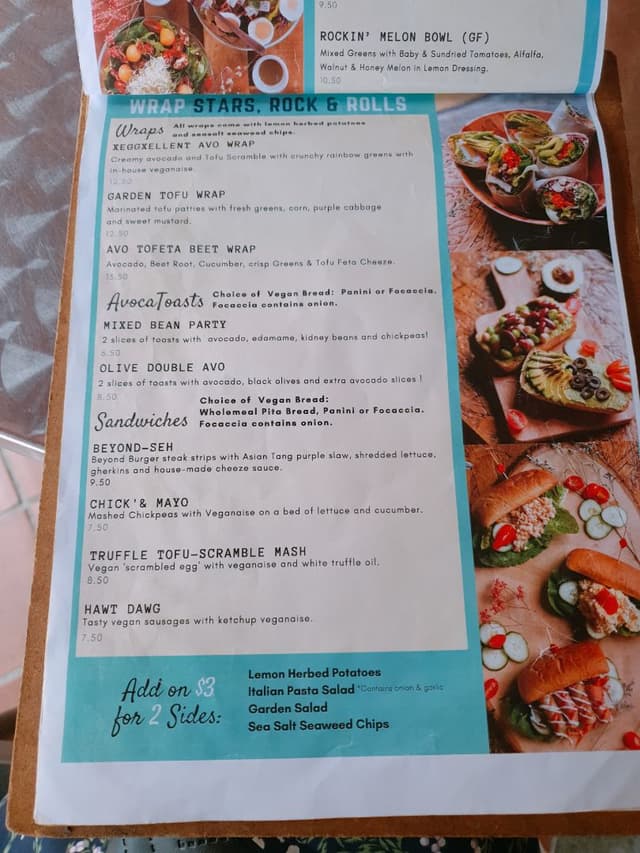 9.50
ROCKIN' MELON BOWL (GF)
Mixed Greens with Baby & Sundried Tomatoes, Alfalfa,
Walnut & Honey Melon in Lemon Dressing.
10.50
WRAP STARS, ROCK & ROLLS
Wraps All wraps come with lemon herbed potatoes
and seasalt seaweed chips.
XEGGXELLENT AVO WRAP
Creamy avocado and Tofu Scramble with crunchy rainbow greens with
in-house veganaise.
GARDEN TOFU WRAP
Marinated tofu patties with fresh greens, corn, purple cabbage
and sweet mustard.
12.50
AVO TOFETA BEET WRAP
Avocado, Beet Root, Cucumber, crisp Greens & Tofu Feta Cheeze.
13.50
AvocaToasts Choice of Vegan Bread: Panini or Focaccia.
Focaccia contains onion.
MIXED BEAN PARTY
2 slices of toasts with avocado, edamame, kidney beans and chickpeas!
OLIVE DOUBLE AVO
2 slices of toasts with avocado, black olives and extra avocado slices !
8.50
Sandwiches Choice of Vegan Bread:
Wholemeal Pita Bread, Panini or Focaccia.
Focaccia contains onion.
BEYOND-SEH
Beyond Burger steak strips with Asian Tang purple slaw, shredded lettuce,
gherkins and house-made cheeze sauce.
9.50
CHICK'& MAYO
Mashed Chickpeas with Veganaise on a bed of lettuce and cucumber.
7.50
TRUFFLE TOFU-SCRAMBLE MASH
Vegan 'scrambled egg' with veganaise and white truffle oil.
8.50
HAWT DAWG
Tasty vegan sausages with ketchup veganaise.
7.50
Add on $3
for 2 Sides:
Lemon Herbed Potatoes
Italian Pasta Salad *Contains onion & garlic
Garden Salad
Sea Salt Seaweed Chips